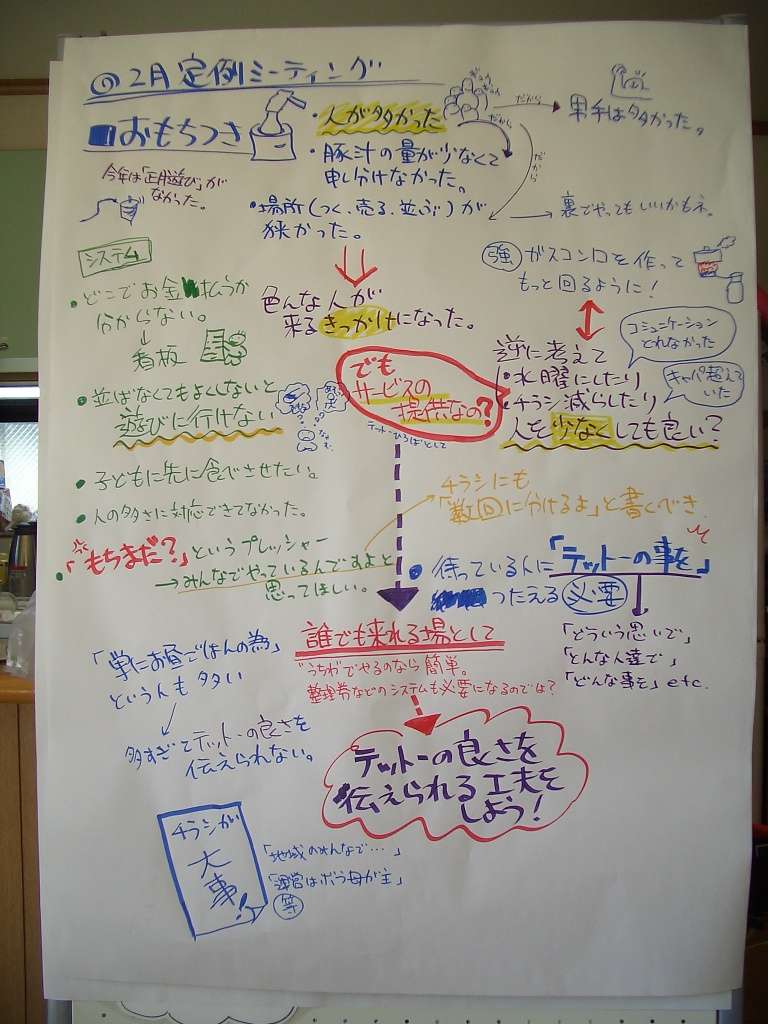 2月定例ミーティング
■おもちつき
今年は「正月遊び」が
なかった。
・人が多かった
だから
男手は多かった。
・豚汁の量が少なくて
申し分けなかった。
だから
だから
・場所（つく、売る、並ぶ）が
狭かった。
裏でやってもいいかもネ。
色んな人が
来るきっかけになった。
強 ガスコンロを作って
もっと回るように！
逆に考えて
・水曜にしたり
・チラシ減らしたり
人を少なくしても良い？
コミュニケーション
とれなかった
キャパ超えて
いた
でも
サービスの
提供なの？
テットーひろばとして
システム
・どこでお金払うか
分からない。
看板
・並ばなくてもよくしないと
遊びに行けない
・子どもに先に食べさせたい。
・人の多さに対応できてなかった。
・「もちまだ？」というプレッシャー
→みんなでやっているんですよと
思ってほしい。
チラシにも
「数回に分けるよ」と書くべき
・待っている人に「テットーの事を」
つたえる必要
「どういう思いで」
「どんな人達で」
「どんな事を」etc.
誰でも来れる場として
"うちわ"でやるのなら簡単。
整理券などのシステムも必要になるのでは？
テットーの良さを
伝えられる工夫を
しよう！
「単にお昼ごはんの為」
という人も多い
多すぎてテットーの良さを
伝えられない。
チラシが
大事!!
「地域のみんなで…」
「運営はボラ母が主」
等